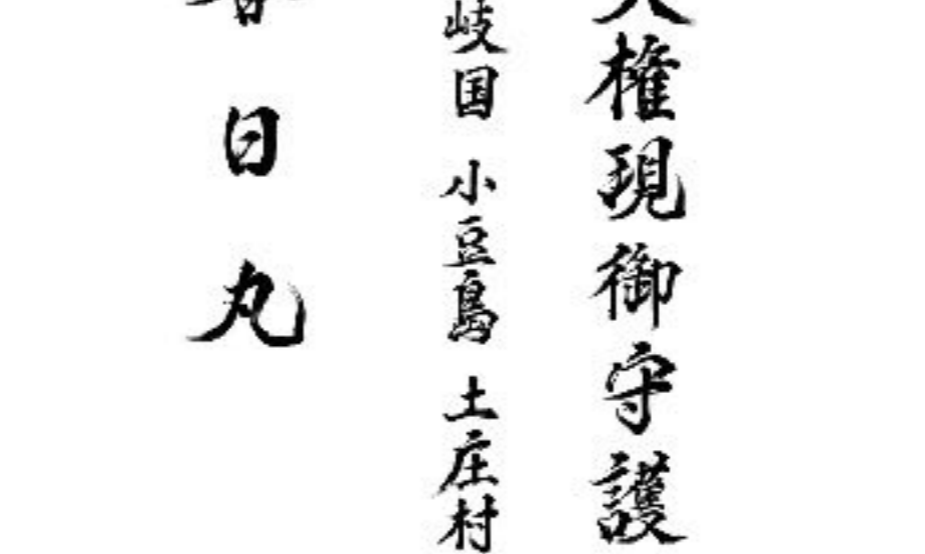 大権現御守護
岐国 小豆島 土庄村
春日丸